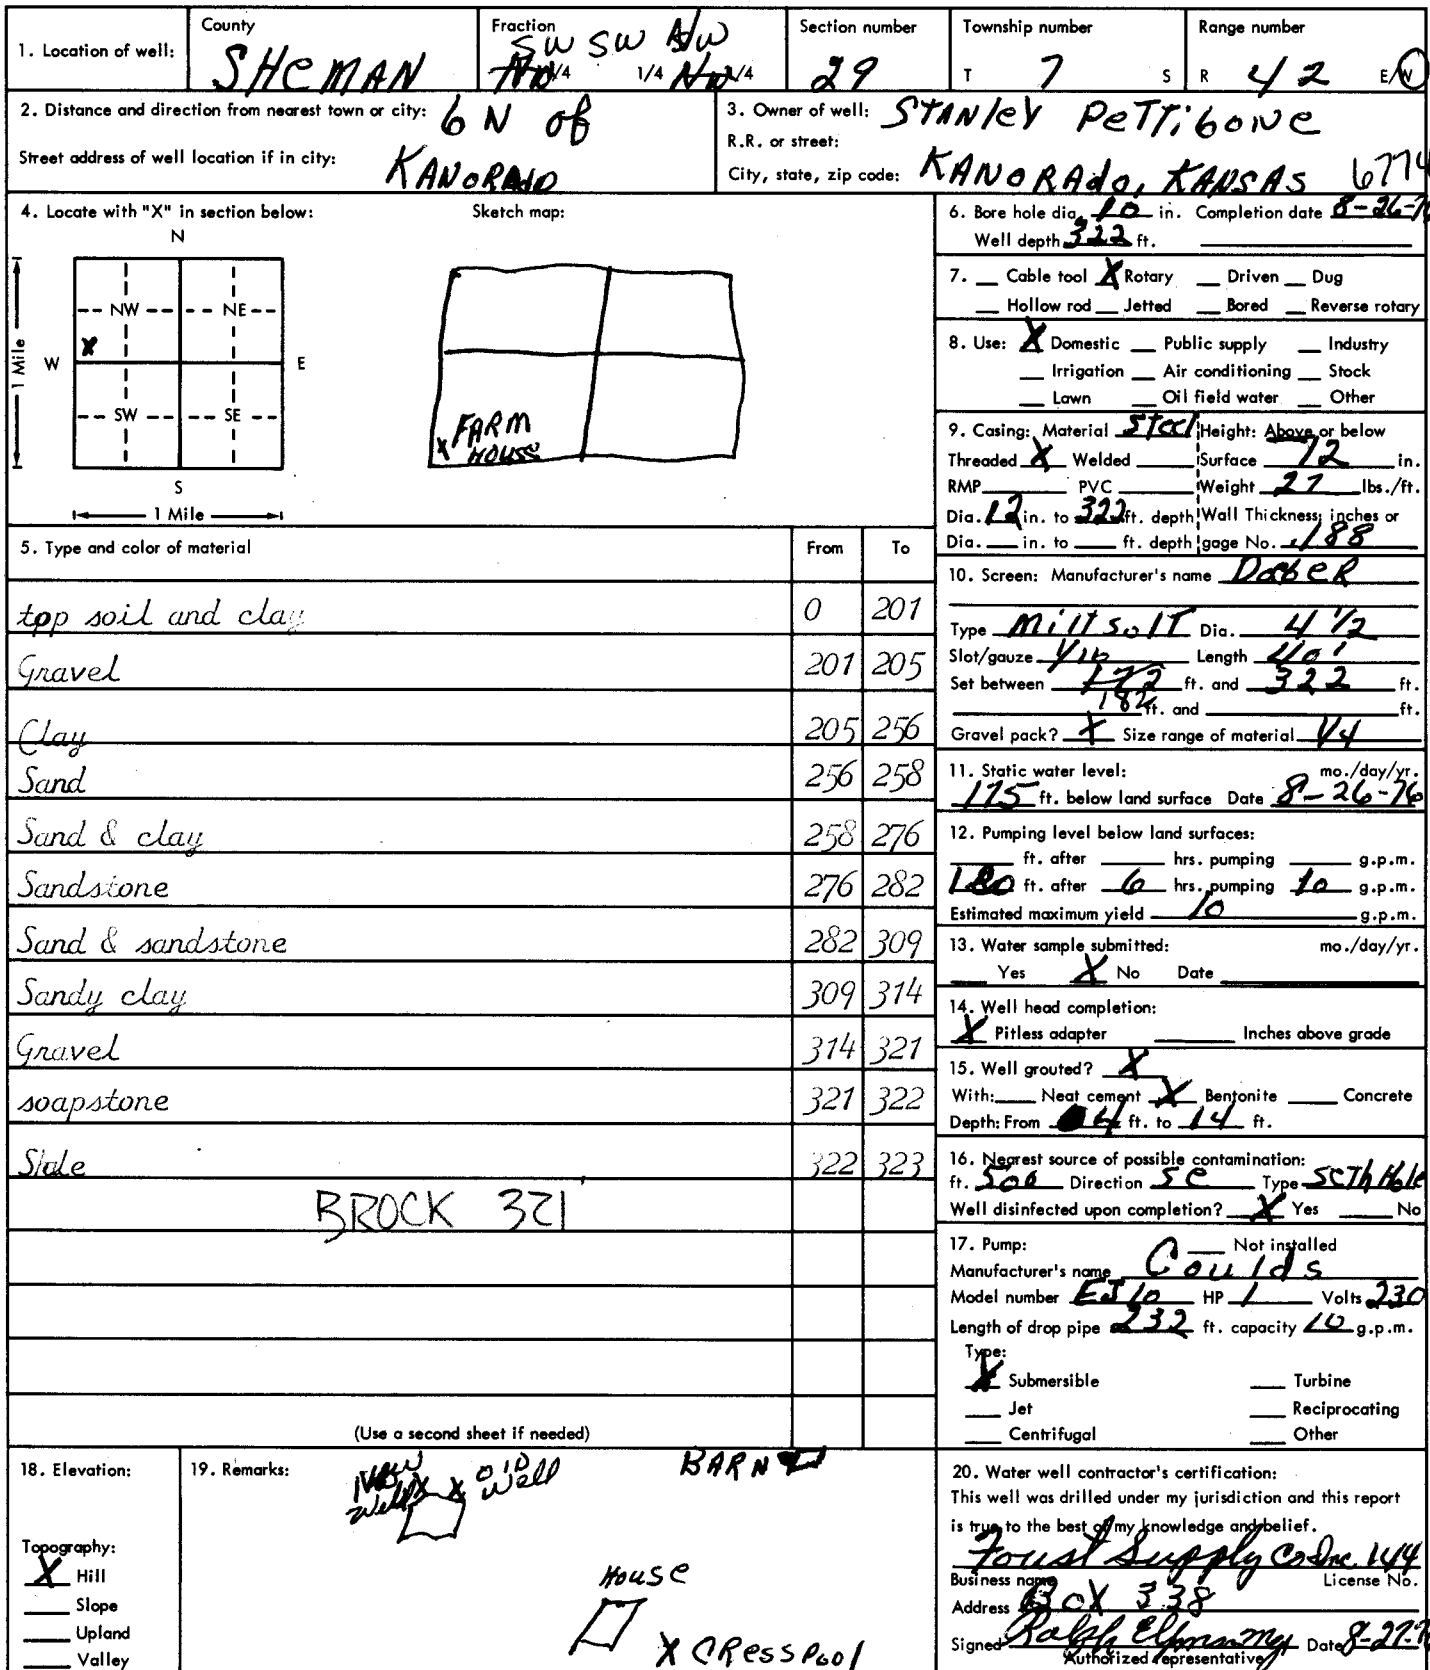 1. Location of well:
County
SHeMAN
Fraction
SW SW NW
1/4 1/4 NW 1/4
Section number
29
Township number
T 7 S
Range number
R 42 E/W
2. Distance and direction from nearest town or city: 6 N of
Street address of well location if in city:
KANORADO
3. Owner of well: STANleY PeTTiboNe
R.R. or street:
City, state, zip code: KANORAdo, KANSAS 6774
4. Locate with "X" in section below:
Sketch map:
N
NW NE
X
W E
1 Mile
SW SE
S
1 Mile
X FARM
HOUSE
5. Type and color of material From To
top soil and clay 0 201
Gravel 201 205
Clay 205 256
Sand 256 258
Sand & clay 258 276
Sandstone 276 282
Sand & sandstone 282 309
Sandy clay 309 314
Gravel 314 321
soapstone 321 322
Slale 322 323
BROCK 321'
(Use a second sheet if needed)
6. Bore hole dia. 10 in. Completion date 8-26-7
Well depth 322 ft.
7. Cable tool X Rotary Driven Dug
Hollow rod Jetted Bored Reverse rotary
8. Use: X Domestic Public supply Industry
Irrigation Air conditioning Stock
Lawn Oil field water Other
9. Casing: Material Steel Height: Above or below
Threaded X Welded Surface 12 in.
RMP PVC Weight 27 lbs./ft.
Dia. 12 in. to 322 ft. depth Wall Thickness: inches or
Dia. in. to ft. depth gage No. .188
10. Screen: Manufacturer's name
Type Mill solT Dia. 4 1/2
Slot/gauze Length 40'
Set between 172 ft. and 322 ft.
182 ft. and ft.
Gravel pack? X Size range of material 1/4
11. Static water level: mo./day/yr.
175 ft. below land surface Date 8-26-76
12. Pumping level below land surfaces:
ft. after hrs. pumping g.p.m.
180 ft. after 6 hrs. pumping 10 g.p.m.
Estimated maximum yield 10 g.p.m.
13. Water sample submitted: mo./day/yr.
Yes X No Date
14. Well head completion:
X Pitless adapter Inches above grade
15. Well grouted? X
With: Neat cement X Bentonite Concrete
Depth: From 4 ft. to 14 ft.
16. Nearest source of possible contamination:
ft. 500 Direction Se Type ScTh Hole
Well disinfected upon completion? X Yes No
17. Pump: Not installed
Manufacturer's name Goulds
Model number EJ10 HP 1 Volts 230
Length of drop pipe 232 ft. capacity 10 g.p.m.
Type:
X Submersible Turbine
Jet Reciprocating
Centrifugal Other
18. Elevation:
Topography:
X Hill
Slope
Upland
Valley
19. Remarks:
New Well X X Old Well
BARN
House
X CResspool
20. Water well contractor's certification:
This well was drilled under my jurisdiction and this report
is true to the best of my knowledge and belief.
Foust Supply Co Inc. 144
Business name License No.
Address Box 338
Signed Ralph Date 8-27-7
Authorized representative